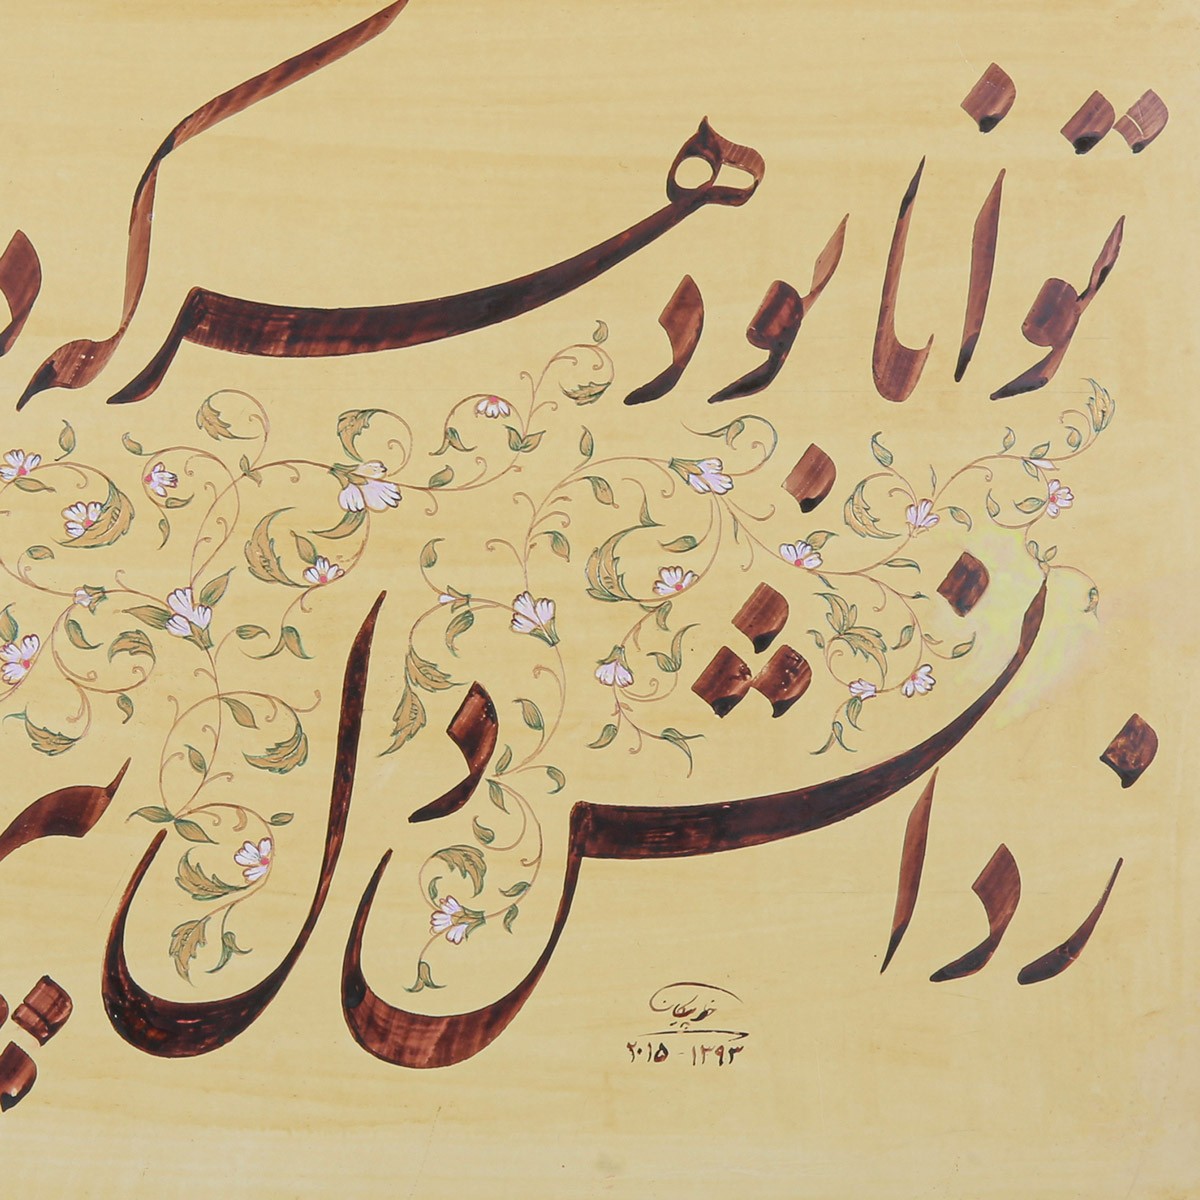 توانا بود هر که د
ز دانش دل پیر
۱۳۹۳ - ۲۰۱۵